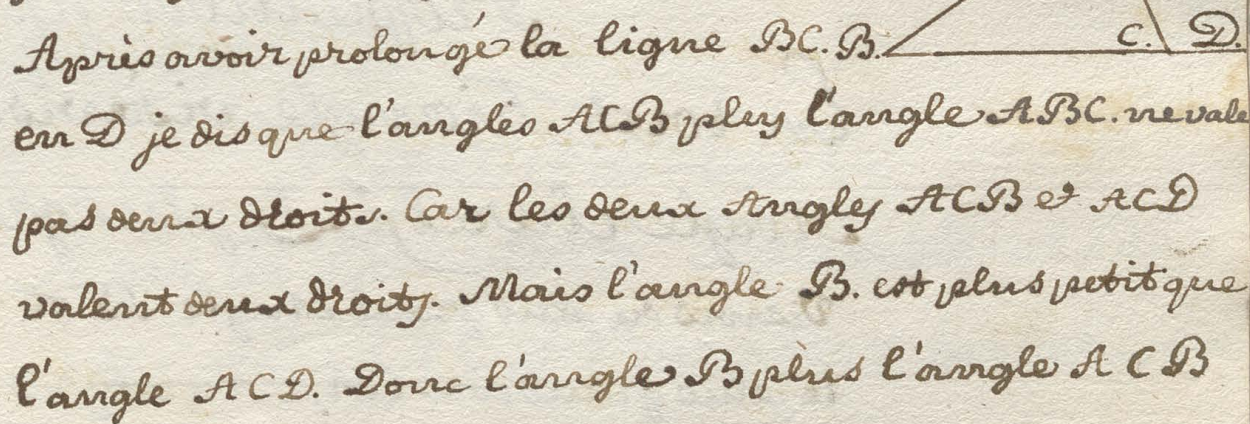 Après avoir prolongé la ligne BC. B. C. D.
en D je dis que l'angles ACB plus l'angle ABC. ne vale
pas deux droits. Car les deux Angles ACB et ACD
valent deux droits. Mais l'angle B. est plus petit que
l'angle ACD. Donc l'angle B plus l'angle ACB